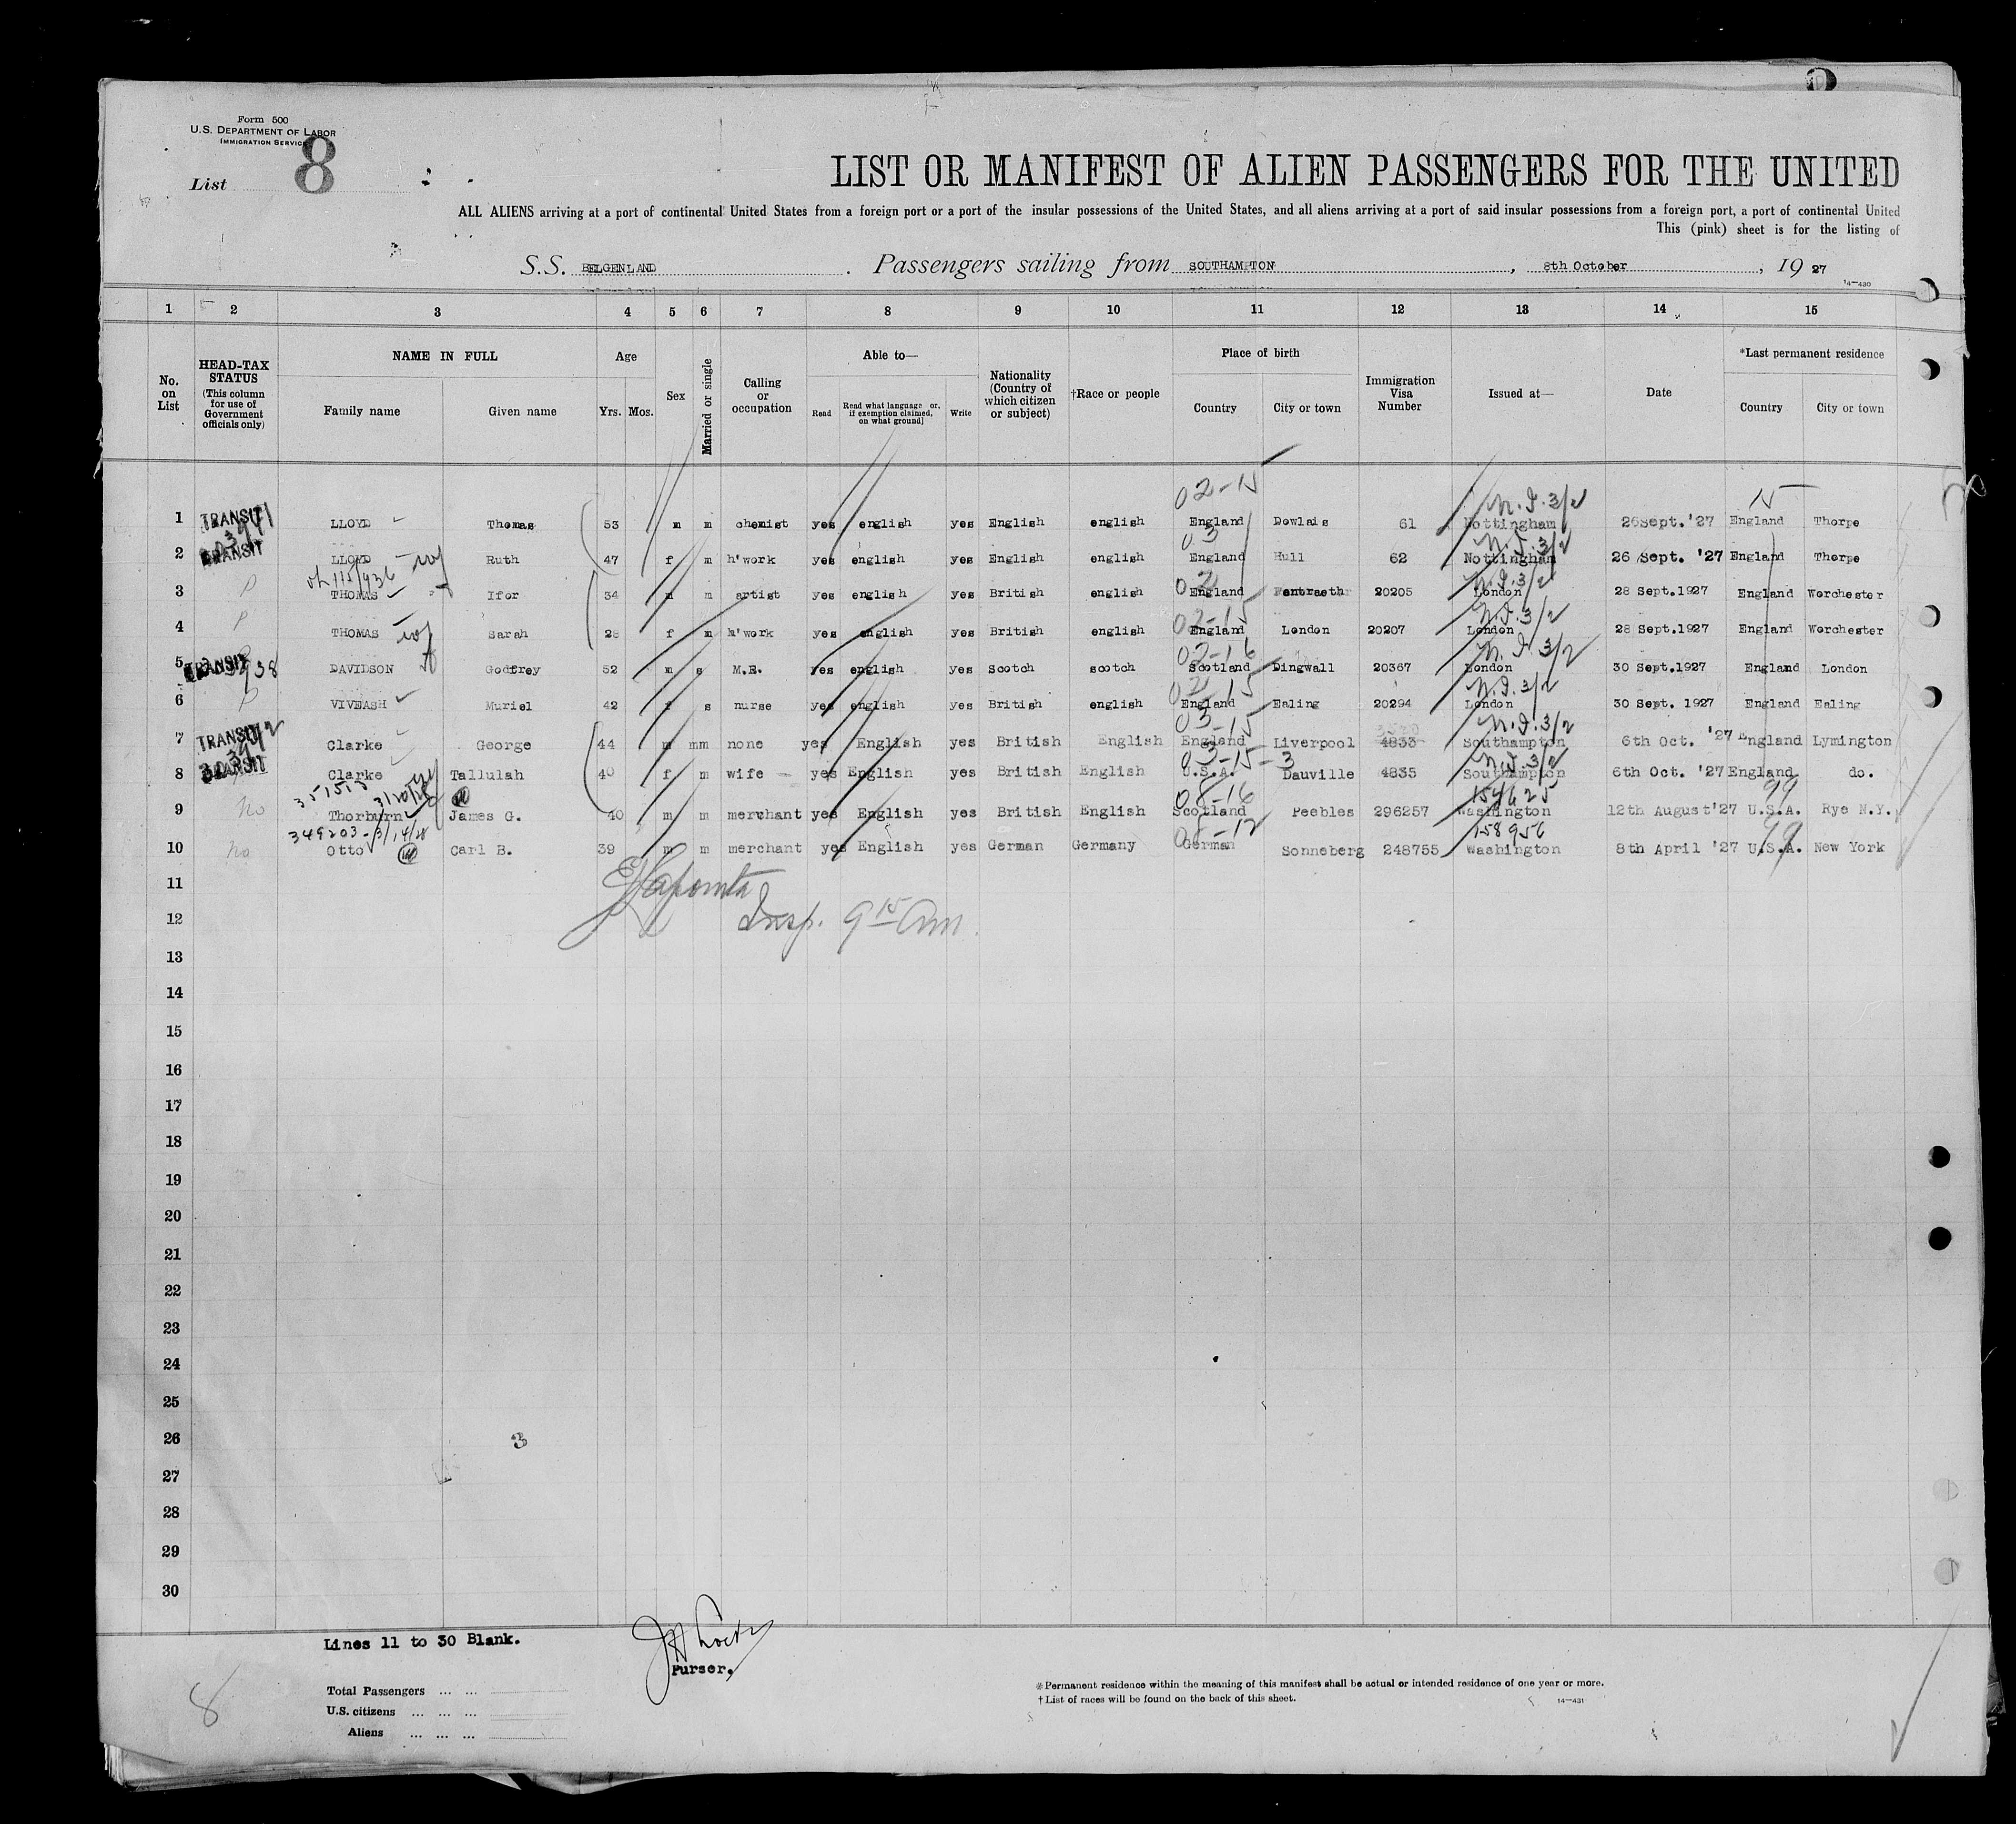 Form 500
U.S. DEPARTMENT OF LABOR
IMMIGRATION SERVICE
List 8
LIST OR MANIFEST OF ALIEN PASSENGERS FOR THE UNITED
ALL ALIENS arriving at a port of continental United States from a foreign port or a port of the insular possessions of the United States, and all aliens arriving at a port of said insular possessions from a foreign port, a port of continental United
This (pink) sheet is for the listing of
S.S. BELGENLAND. Passengers sailing from SOUTHAMPTON, 8th October, 19 27
14—430
1 2 3 4 5 6 7 8 9 10 11 12 13 14 15
No. on List
HEAD-TAX STATUS (This column for use of Government officials only)
NAME IN FULL Family name Given name
Age Yrs. Mos.
Sex
Married or single
Calling or occupation
Able to— Read Read what language or, if exemption claimed, on what ground] Write
Nationality (Country of which citizen or subject)
†Race or people
Place of birth Country City or town
Immigration Visa Number
Issued at—
Date
*Last permanent residence Country City or town
02-15 N.I.3/2 15
1 TRANSIT LLOYD Thomas 53 m m chemist yes english yes English english England Dowlais 61 Nottingham 26Sept.'27 England Thorpe
03 N.I.3/2
2 TRANSIT LLOYD Ruth 47 f m h'work yes english yes English english England Hull 62 Nottingham 26 Sept. '27 England Thorpe
N.I.3/2
3 P THOMAS Ifor 34 m m artist yes english yes British english England 20205 London 28 Sept.1927 England Worchester
02-15 N.I.3/2
4 P THOMAS Sarah m h'work yes english yes British english England London 20207 London 28 Sept.1927 England Worchester
02-16 N.I.3/2
5 TRANSIT DAVIDSON Godfrey 52 m s M.E. yes english yes Scotch scotch Scotland Dingwall 20367 London 30 Sept.1927 England London
02-15 N.I.3/2
6 P VIVEASH Muriel 42 f s nurse yes english yes British english England Ealing 20294 London 30 Sept. 1927 England Ealing
03-15 N.I.3/2
7 TRANSIT Clarke George 44 m mm none yes English yes British English England Liverpool 4833 Southampton 6th Oct. '27 England Lymington
03-15-3 N.I.3/2
8 TRANSIT Clarke Tallulah 40 f m wife yes English yes British English U.S.A. Dauville 4835 Southampton 6th Oct. '27 England do.
08-16 154625 99
9 no Thorburn James G. 40 m m merchant yes English yes British English Scotland Peebles 296257 Washington 12th August'27 U.S.A. Rye N.Y.
349203-3/14/28 08-12 158956 99
10 no Otto Carl B. 39 m m merchant yes English yes German Germany German Sonneberg 248755 Washington 8th April '27 U.S.A. New York
11
12 Insp. 9 15 Am.
13
14
15
16
17
18
19
20
21
22
23
24
25
26 3
27
28
29
30
Lines 11 to 30 Blank.
Purser.
8
Total Passengers ... ...
U.S. citizens ... ... ...
Aliens ... ... ...
※Permanent residence within the meaning of this manifest shall be actual or intended residence of one year or more.
†List of races will be found on the back of this sheet.
14—431